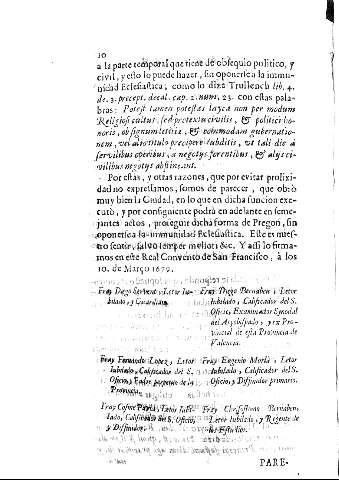 10
à la parte temporal que tiene de obsequio politico, y
civil, y esto lo puede hazer, sin oponerse à la immu-
nidad Eclesiastica; como lo dize Trullench lib. 4.
de. 3. precept. decal. cap. 2. num. 23. con estas pala-
bras: Potest tamen potestas layca non per modum
Religiosi cultus, sed pretextu civilis, & politici ho-
noris, ob signum letitiæ, & commodam gubernatio-
nem, vel alio titulo precipere subditis, ut tali die à
servilibus operibus, à negotys forentibus, & alys ci-
vilibus negotys abstineant.
Por estas, y otras razones, que por evitar prolixi-
dad no expressamos, somos de parecer, que obrò
muy bien la Ciudad, en lo que en dicha funcion exe-
cutò, y por consiguiente podrà en adelante en seme-
jantes actos, proseguir dicha forma de Pregon, sin
oponerse à la immunidad Eclesiastica. Este es nues-
tro sentir, salvo semper meliori &c. Y assi lo firma-
mos en este Real Convento de San Francisco, à los
10. de Março 1679.
Fray Diego Bernaben, Letor
Jubilado, Calificador del S.
Oficio, Examinador Synodal
del Arçobispado, y ex Pro-
vincial de esta Provincia de
Valencia.
Fray Fernando Lopez, Letor
Jubilado, Calificador del S.
Oficio, y Padre perpetuo de la
Provincia.
Fray Eugenio Morlà, Letor
Jubilado, Calificador del S.
Oficio, y Difinidor primario.
Fray Cosme Parra, Letor Jubi-
lado, Calificador del S. Oficio,
y Difinidor.
Fray Chrisostomo Bernaben,
Letor Jubilado, y Regente de
los Estudios.
PARE-